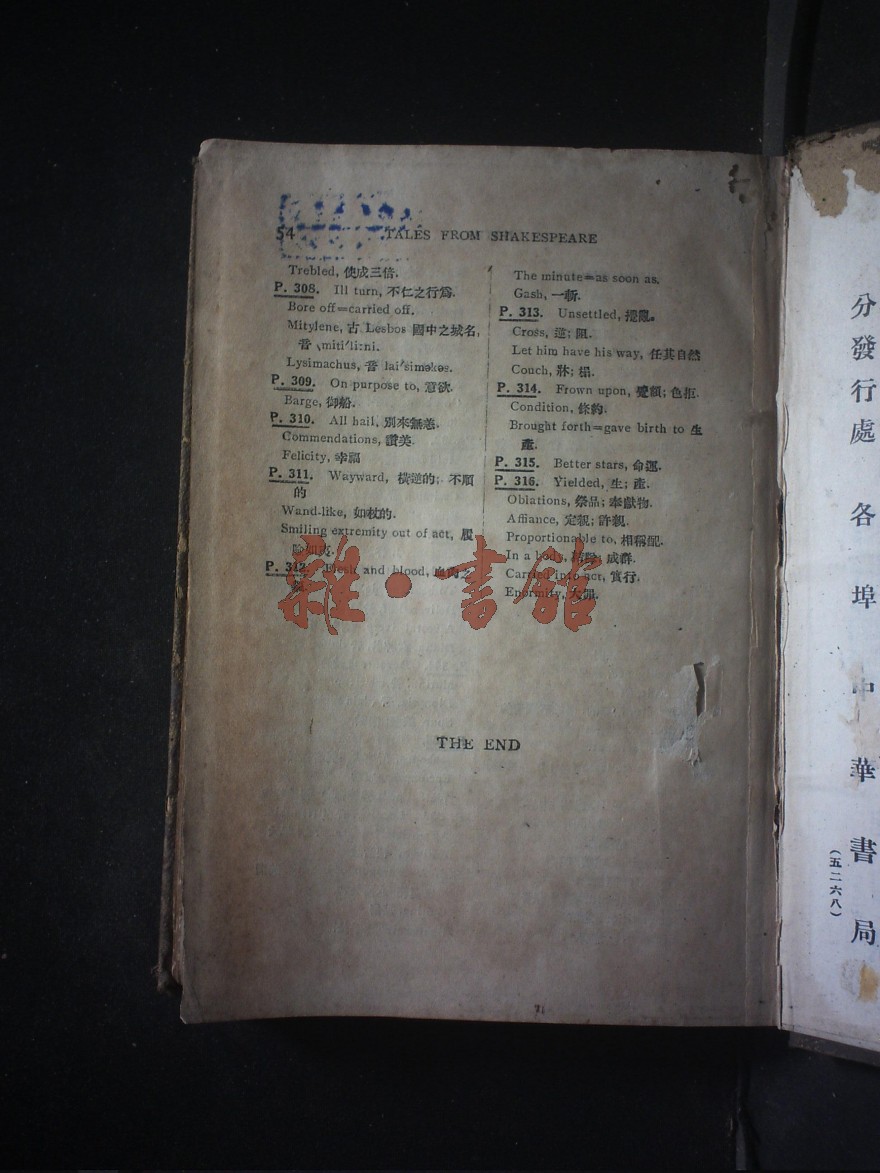 54 TALES FROM SHAKESPEARE
Trebled, 使成三倍.
P. 308. Ill turn, 不仁之行爲.
Bore off=carried off.
Mitylene, 古 Lesbos 國中之城名,
音 miti'li:ni.
Lysimachus, 音 lai'siməkəs.
P. 309. On purpose to, 意欲.
Barge, 御船.
P. 310. All hail, 別來無恙.
Commendations, 讚美.
Felicity, 幸福
P. 311. Wayward, 橫逆的; 不順
的
Wand-like, 如杖的.
Smiling extremity out of act, 履
險如夷.
P. 312. Flesh and blood, 血肉之
親.
The minute=as soon as.
Gash, 一斬.
P. 313. Unsettled, 攪亂.
Cross, 逆; 阻.
Let him have his way, 任其自然
Couch, 牀; 榻.
P. 314. Frown upon, 蹙額; 色拒.
Condition, 條約.
Brought forth=gave birth to 生
產.
P. 315. Better stars, 命運.
P. 316. Yielded, 生; 產.
Oblations, 祭品; 奉獻物.
Affiance, 定親; 許親.
Proportionable to, 相稱配.
In a body, 成群.
Carried into act, 實行.
Enormity, 大罪.
THE END
雜·書館
分發行處 各埠中華書局
(五二六八)